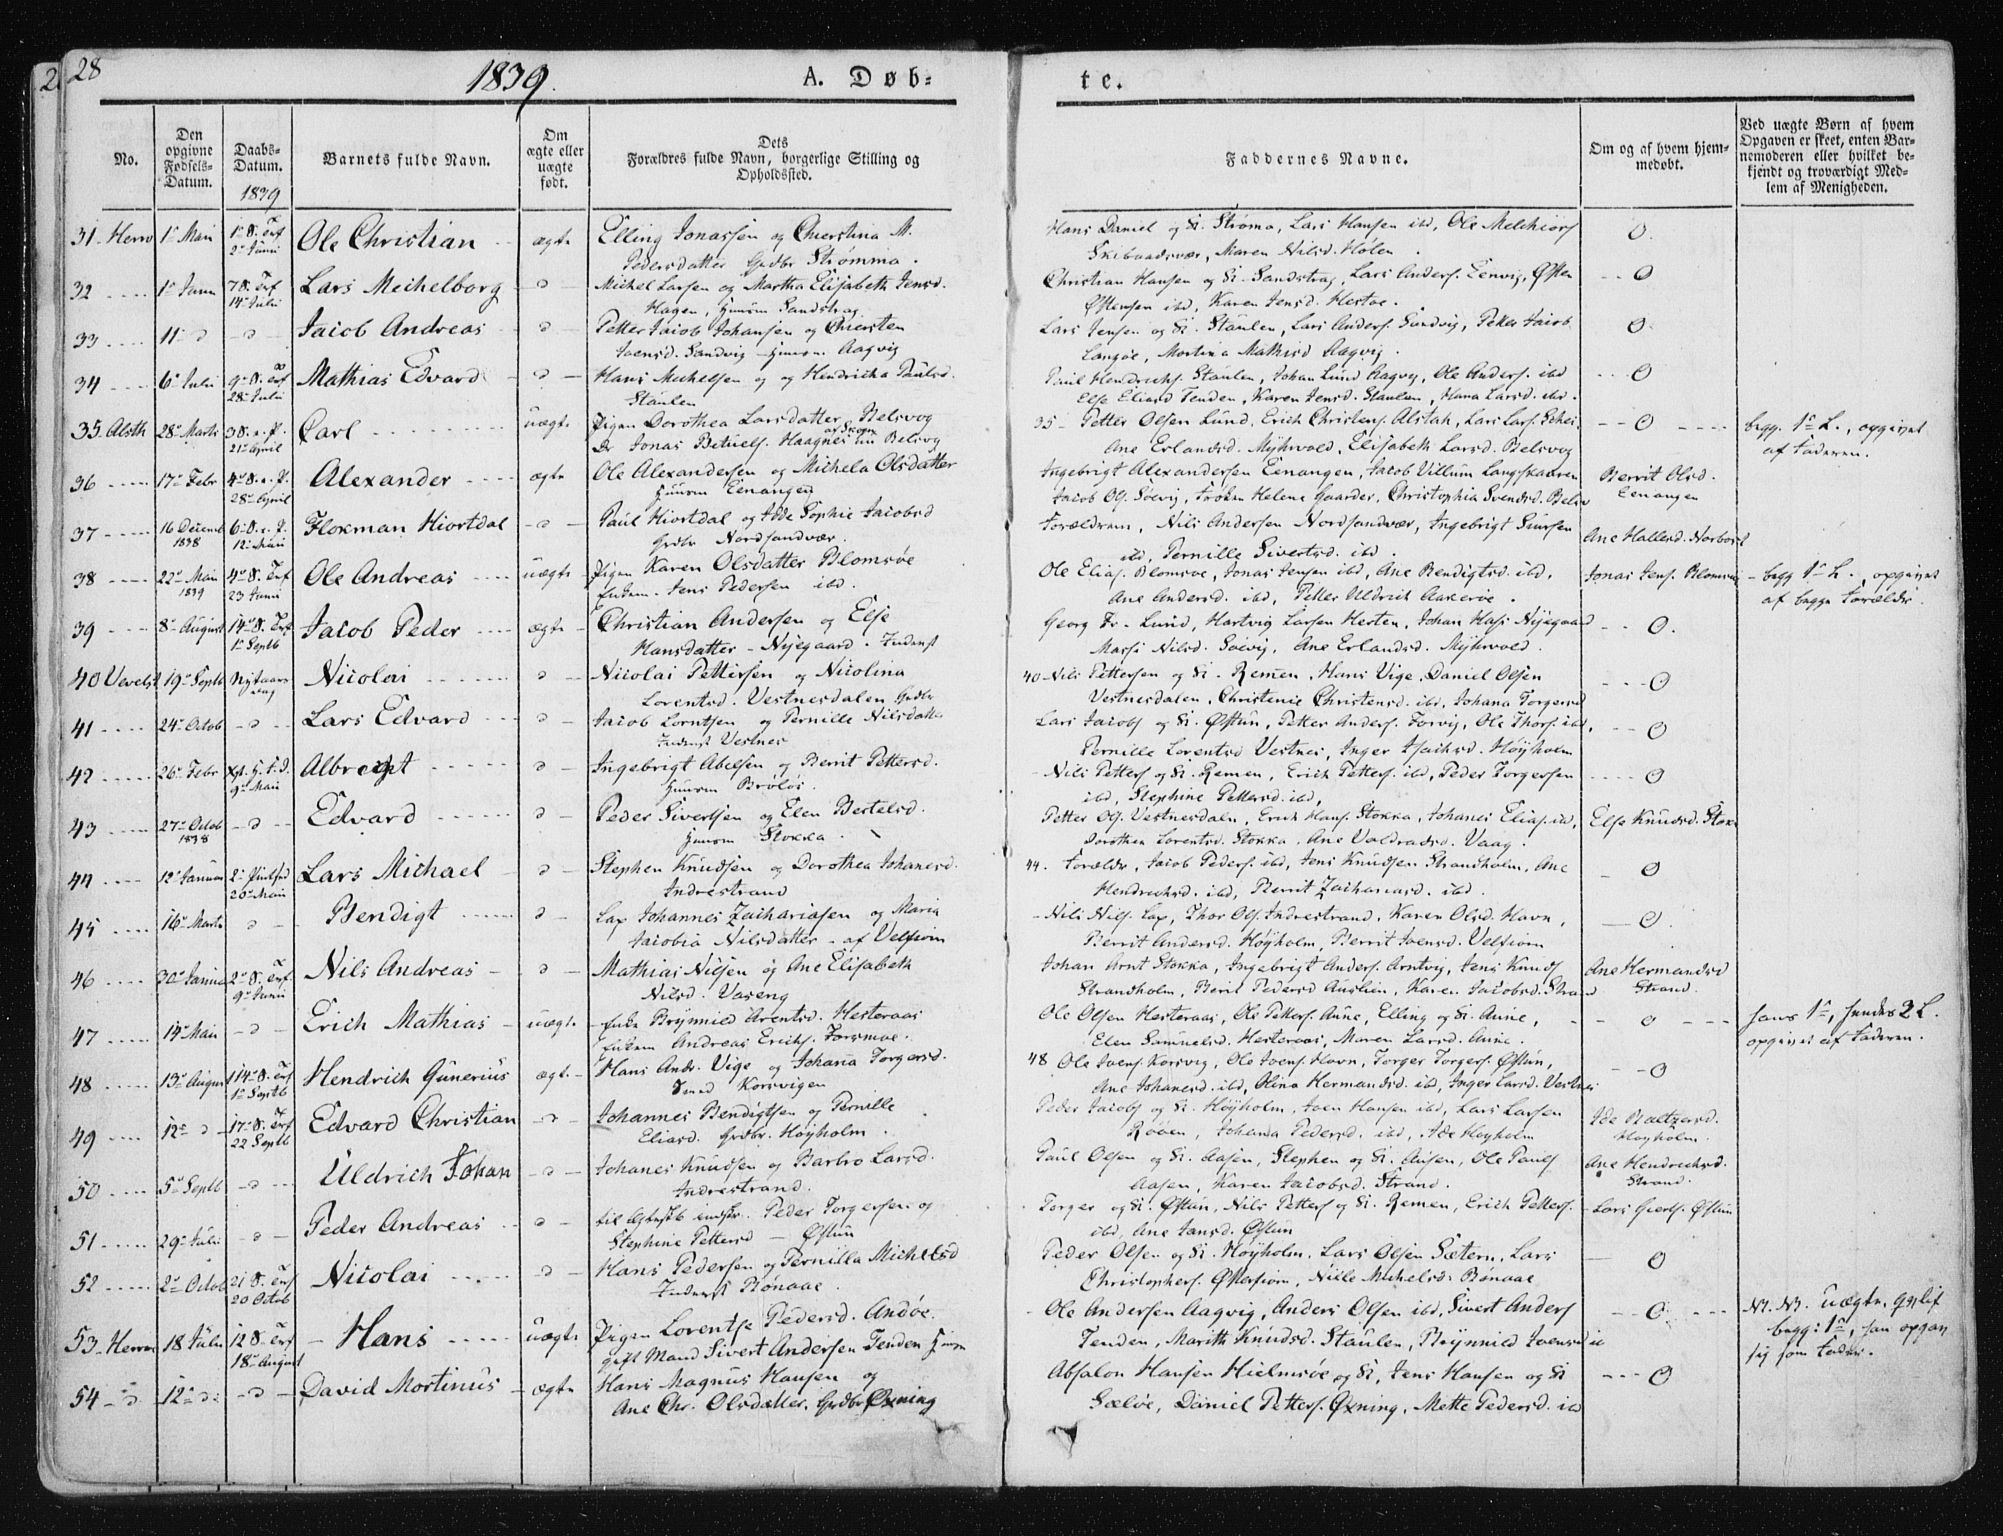 28
1839.
A. Døb-
te.
No.
Den opgivne Fødsels-Datum.
Daabs-Datum.
1839
Barnets fulde Navn.
Om ægte eller uægte født.
Dets Forældres fulde Navn, borgerlige Stilling og Opholdssted.
Faddernes Navne.
Om og af hvem hjem-medøbt.
Ved uægte Børn af hvem Opgaven er skeet, enten Bar-nemoderen eller hvilket be-kjendt og troværdigt Med-lem af Menigheden.
31. Herrø 1ste Maii 2den Junii Ole Christian ægte Elling Jonassen og Chierstina M. Pedersdatter Grdbr Strømma. Hans Daniel og Si. Strøma, Lars Hansen ibd, Ole Melchiors Skibaadsvær, Maren Nilsd. Holen. O.
32 14de Julii Lars Meihelborg Michel Larsen og Martha Elisabeth Jensd. Hagen, Sandstrag. Christian Hansen og Si. Sandstrag, Lars Anders. Eenvig, Østen Østensen ibd, Karen Jensd. Hestøe. O
33 11 Jacob Andreas Petter Jacob Johansen og Chiersten Joensd. Sandvig Aagvig Lars Jensen og Si. Staulen, Lars Anders. Sandvig, Peter Jacob Langøe, Martina Mathisd Aagvig. O
34 6te Julii 28de Julii Mathias Edvard Hans Michelsen og Hendricha Paulsd. Staulen Paul Hendrichs. Staulen, Johan Lund Aagvig, Ole Anders. ibd Else Eliasd Tenden, Karen Jensd. Staulen, Hana Larsd. ibd. O
35 Alsth 28de Marts 21de April Carl uægte Pigen Dorothea Larsdatter Belsvog Dr Jonas Betuels. Haagnes Belsvog 35 Petter Olsen Lund, Erich Christens. Alstah, Lars Lars. Ane Erlandsd. Myhrvold, Elisabeth Larsd. Belsvog O begg. 1ste L., opgivet af Faderen.
36 17de Febr 28de April Alexander ægte Ole Alexandersen og Michela Olsdatter Eenangen Ingebrigt Alexandersen Eenangen, Jacob Villum Langskaaren Jacob Ols. Søevig, Frøken Helene Gaarder, Christophia Svendsd. Berrit Olsd. Eenangen
37 16 Decemb 1838 12te Maii Flokman Hiortdal Paul Hiortdal og Ide Sophie Jacobsd Grdbr Nordsandvær. Forældrene, Nils Andersen Nordsandvær, Ingebrigt Siursen ibd, Pernille Sivertsd. ibd. Ane Hallesd. Norbost
38 22de Maii 1839 23 Junii Ole Andreas uægte Pigen Karen Olsdatter Blomsøe Jens Pedersen ibd. Ole Elias. Blomsøe, Jonas Jensen ibd, Ane Bendigtsd. ibd, Ane Andersd. ibd, Petter Uldrich Aakerøe. Jonas Jens. Blomsøe begg 1ste L., opgivet af begge Forældr.
39 8de August 1ste Septb Jacob Peder ægte Christian Andersen og Else Hansdatter Nyegaard. Inderst Georg Fr. Lund, Hartvig Larsen Hesten, Johan Hass Nyegaard Nilsd. Søevig, Ane Erlandsd. Myhrvold. O.
40 Vevelst 19de Septb Nytaarsdag Nicolai Nicolai Pettersen og Nicolina Lorentsd. Vestnesdalen Grdbr 40 Nils Pettersen og Si. Remen, Hans Vige, Daniel Olsen Vestnesdalen, Christenie Christensd. ibd, Johana Torgersd O
41 24de Octob Lars Edvard Jacob Lorntsen og Pernille Nilsdatter Inderst Vestnes Lars Jacobs og Si. Østun, Petter Anders. Forvig, Ole Thors. ibd, Pernille Lorentsd Vestnes, Inger Isachsd. Høyholm O
42 26de Febr 9de Maii Albregt Ingebrigt Abelsen og Berrit Pettersd. Brøløs. Nils Petters og Si. Remen, Erich Petters. ibd, Peder Torgersen ibd, Stephine Pettersd. ibd. O
43 27de Octob 1838 Edvard Peder Sivertsen og Elen Bertelsd. Stokka. Petter Ols. Vestnesdaln, Erich Hans. Stokka, Johanes Elias. ibd, Dorothea Lorentsd. Stokka. Ane Valdradsd. Vaag. Else Knudsd. Stok
44 12te Januar 20de Maii Lars Michael Stephen Knudsen og Dorothea Johanesd. Indrestrand 44. Forældr, Jacob Peders. ibd, Jens Knudsen Strandholm, Ane Hendrichsd. ibd, Berrit Zachariasd. ibd. O
45 16de Marts Bendigt Lap Johannes Zachariasen og Maria Jacobia Nilsdatter - af Velfiorn Nils Nils. Lap, Thor Ols. Indrestrand, Karen Olsd. Havn, Berrit Andersd. Høyholm, Berrit Joensd. Velfiorn. O
46 30te 9de Junii Nils Andreas Mathias Nilsen og Ane Elisabeth Nilsd. Vaseng Johan Arnt Stokka, Ingebrigt Anders. Arntvig, Jens Knuds Strandholm, Berit Pedersd Auslien, Karen Jacobsd. Strand Ane Hermandsd Strand.
47 14de Maii Erich Mathias uægte Brynnild Arentsd. Hesteraas Andreas Erichs. Forsmoe. Ole Olsen Hesteraas, Ole Petters. Aune, Elling og Si. Aune, Elen Samuelsd. Hesteraas, Maren Larsd. Aune. O hans 1ste, hendes 2 L. opgivet af Faderen.
48 13de August 1ste Septb Hendrich Gunerius ægte Hans Andr. Vige og Johana Torgersd. Korsvigen 48 Ole Joens. Korsvig, Ole Joens. Havn, Torger Torgers. Østun, Ane Johanesd. ibd, Olina Hermandsd. ibd, Inger Larsd. Vestnes O
49 12te 22 Septb Edvard Christian Johannes Bendigtsen og Pernille Eliasd. Grdbr. Høyholm. Peder Jacobs og Si. Høyholm, Joen Hansen ibd, Lars Larsen Røøen, Johana Pedersd. ibd, Ide Høyholm Ide Baltzersd. Høyholm.
50 5te Septb Uldrich Johan Johanes Knudsen og Barbro Larsd. Indrestrand. Paul Olsen og Si. Aasen, Stephen og Si. Aasen, Ole Pauls Aasen, Karen Jacobsd. Strand. Ane Hendrichsd. Strand.
51 29de Julii Peder Andreas Peder Torgersen og Stephine Pettersd Østun Torger og Si. Østun, Nils Petters og Si. Remen, Erich Petters. ibd, Ane Jansd. Østun Lars Østun
52 2den Octob 20 Octob Nicolai Hans Pedersen og Pernilla Michelsd Inderst Rønaae. Peder Olsen og Si. Høyholm, Lars Olsen Sætern, Lars Christophers. Østerfiorn, Nille Michelsd. Rønaae O
53 Herrø 18 Julii 18de August Hans uægte Pigen Lorentse Pedersd. Andøe. gift Mand Sivert Andersen Tenden Ole Andersen Aagvig, Anders Olsen ibd, Sivert Anders Tenden, Marith Knudsd. Staulen, Brynnild Joensd O NB. NB. uægte. begg: 1ste, han opgav sig som Fader.
54 12te David Mortinus ægte Hans Magnus Hansen og Ane Chr. Olsdatter. Grdbr Øxning Absalon Hansen Hielmsøe og Si, Jens Hansen og Si Sæløe, Daniel Petters. Øxning, Mette Pedersd. ibd O